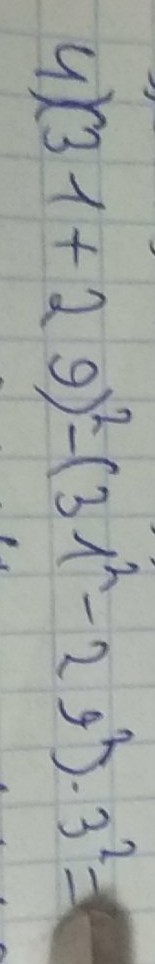 4)(31+29)²-(31²-29²)·3²=